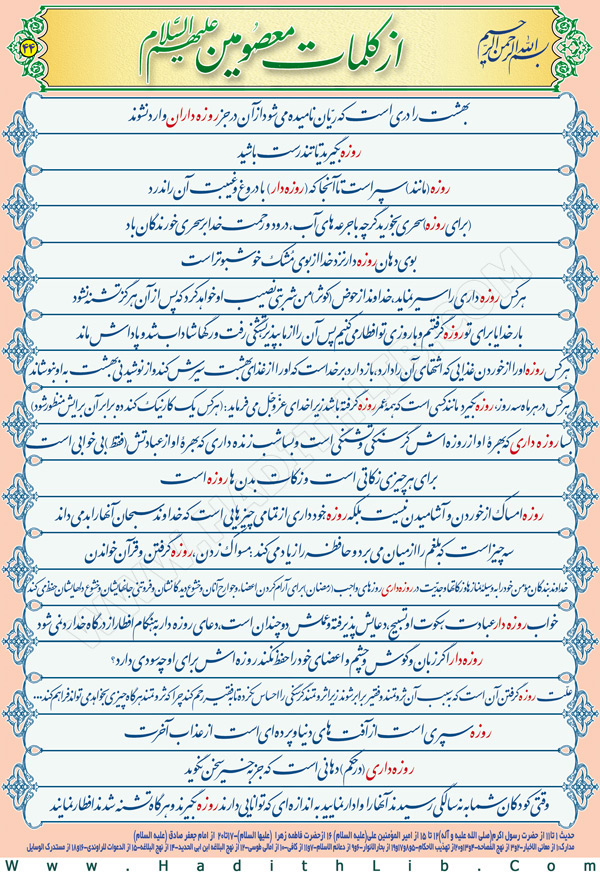 بسم الله الرحمن الرحیم
از کلمات معصومین علیهم السّلام
۴۴
بهشت را دری است که ریّان نامیده می‌شود از آن در جز روزه داران وارد نشوند
روزه بگیرید تا تندرست باشید
روزه (مانند) سپر است تا آنجا که (روزه‌دار) با دروغ و غیبت آن را ندرد
(برای روزه) سحری بخورید گرچه با جرعه‌های آب، درود و رحمت خدا بر سحری خورندگان باد
بوی دهان روزه دار نزد خدا از بوی مُشک خوشبوتر است
هر کس روزه داری را سیر نماید، خداوند از حوض (کوثر) من شربتی نصیب او خواهد کرد که پس از آن هرگز تشنه نشود
بار خدایا برای تو روزه گرفتیم و با روزی تو افطار می‌کنیم پس آن را از ما بپذیر تشنگی رفت و رگها شاداب شد و پاداش ماند
هر کس روزه او را از خوردن غذایی که اشتهای آن را دارد، باز دارد بر خداست که او را از غذای بهشت سیرش کند و از نوشیدنی بهشت به او بنوشاند
هر کس در هر ماه سه روز، روزه بگیرد مانند کسی است که همه عمر روزه گرفته باشد زیرا خدای عزّوجل می‌فرماید: (هر کس یک کار نیک کند ده برابر آن برایش منظور شود)
بسا روزه داری که بهرهٔ او از روزه اش گرسنگی و تشنگی است و بسا شب زنده داری که بهرهٔ او از عبادتش (فقط) بی خوابی است
برای هر چیزی زکاتی است و زکات بدن ها روزه است
روزه امساک از خوردن و آشامیدن نیست بلکه روزه خودداری از تمامی چیزهایی است که خداوند سبحان آنها را بد می داند
سه چیز است که بلغم را از میان می برد و حافظه را زیاد می کند: مسواک زدن، روزه گرفتن و قرآن خواندن
خداوند بندگان مؤمن خود را به وسیله نمازها و زکاتها و جدّیت در روزه داری روزهای واجب (رمضان) برای آرام کردن اعضاء و جوارح آنان و خشوع دیدگانشان و فروتنی جانهایشان و خضوع دلهایشان حفظ می کند
خواب روزه دار عبادت، سکوت او تسبیح، دعایش پذیرفته و عملش دو چندان است، دعای روزه دار به هنگام افطار از درگاه خدا رد نمی شود
روزه دار اگر زبان و گوش و چشم و اعضای خود را حفظ نکند روزه اش برای او چه سودی دارد؟
علت روزه گرفتن آن است که به سبب آن ثروتمند و فقیر برابر شوند زیرا ثروتمند گرسنگی را احساس نکرده تا به فقیر رحم کند چرا که ثروتمند هرگاه چیزی بخواهد می تواند فراهم کند،...
روزه سپری است از آفت های دنیا و پرده ای است از عذاب آخرت
روزه داری (در حکم) دهانی است که جز به خیر سخن نگوید
وقتی کودکان شما به نه سالگی رسیدند آنها را وادار نمایید به اندازه ای که توانایی دارند روزه بگیرند و هرگاه تشنه شدند افطار نمایند
حدیث ۱ تا ۱۱ از حضرت رسول اکرم (صلی الله علیه و آله) ۱۲ تا ۱۵ از امیر المؤمنین علی (علیه السلام) ۱۶ از حضرت فاطمه زهرا (علیها السلام)-۱۷ تا ۲۰ از امام جعفر صادق (علیه السلام)
Www.HadithLib.Com
WWW.HADITHLIB.COM